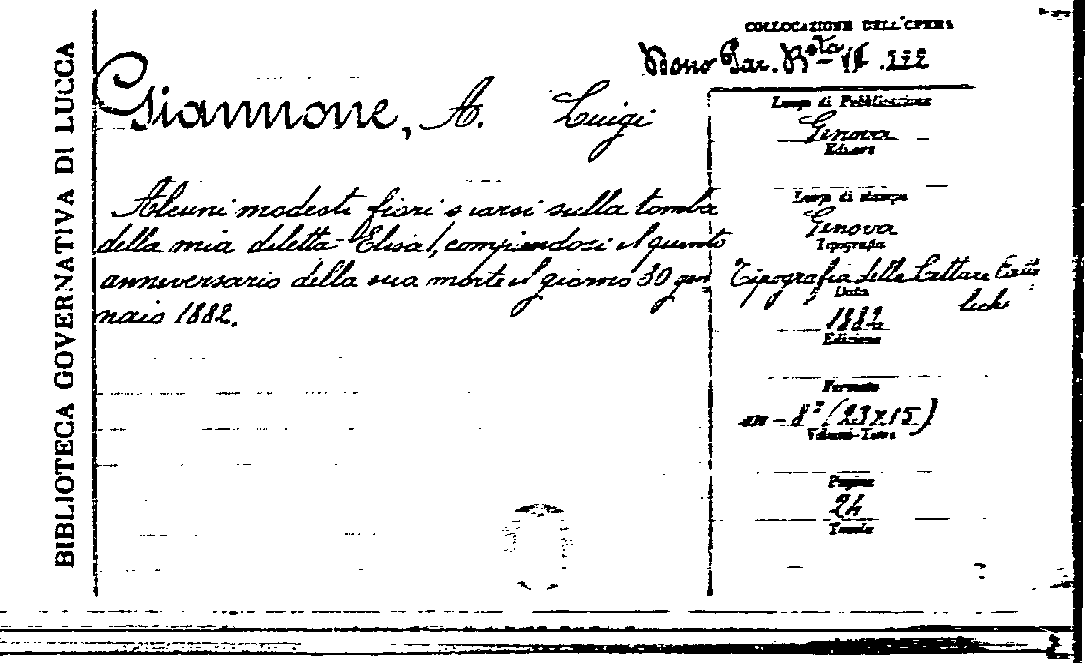 BIBLIOTECA GOVERNATIVA DI LUCCA
COLLOCAZIONE DELL'OPERA
Giannone, A. Luigi
Alcuni modesti fiori sparsi sulla tomba
della mia diletta Elisa!, compiendosi il quinto
anniversario della sua morte il giorno 30 gen
naio 1882.
Luogo di Pubblicazione
Genova
Editore
Luogo di stampa
Genova
Tipografia
Tipografia delle Letture Catto
liche
Data
1882
Edizione
Formato
in-8° (23x15)
Volumi-Tomo
Pagine
24
Tavole